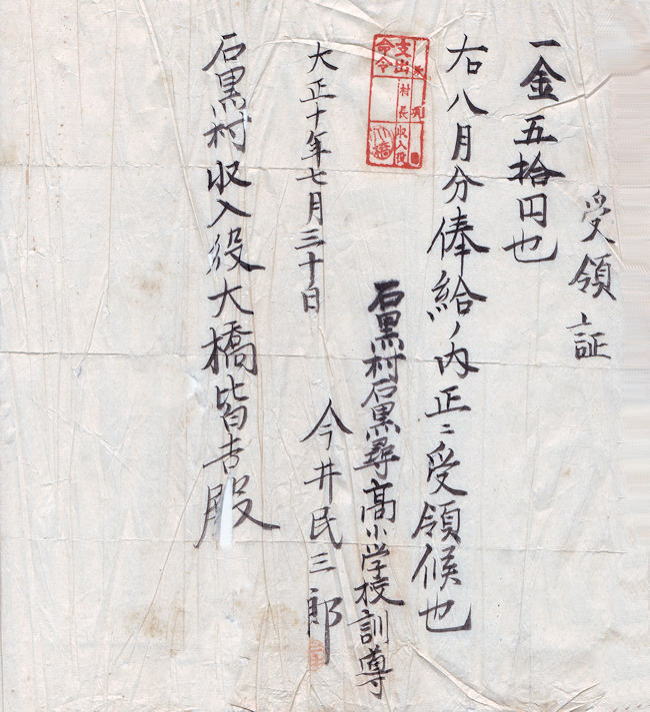 受領証
一金五拾円也
右八月分俸給ノ内正ニ受領候也
支出命令
村長
収入役
大橋
石黒村石黒尋高小学校訓導
大正十年七月三十日
今井民三郎
石黒村収入役大橋皆吉殿